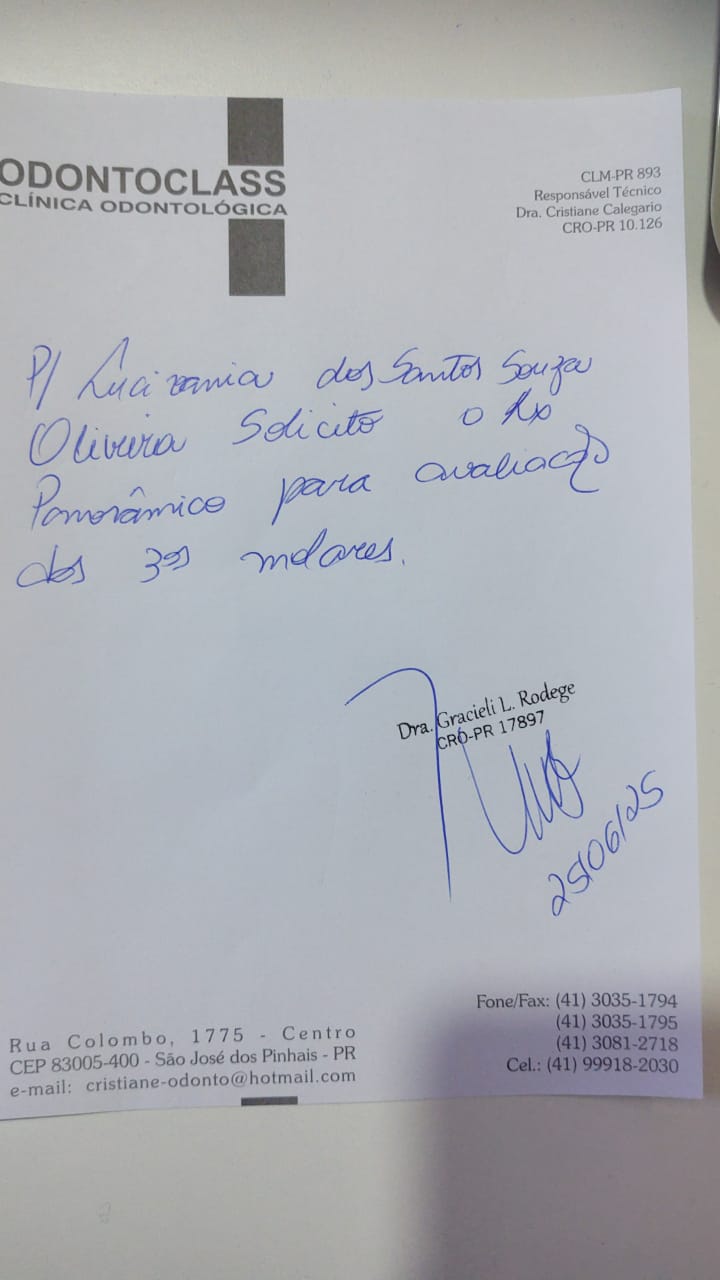 ODONTOCLASS
CLÍNICA ODONTOLÓGICA
CLM-PR 893
Responsável Técnico
Dra. Cristiane Calegario
CRO-PR 10.126
P/ Lucizania dos Santos Souza
Oliveira Solicito o Rx
Panorâmico para avaliação
dos 3os molares.
Dra. Gracieli L. Rodege
CRO-PR 17897
25/06/25
Rua Colombo, 1775 - Centro
CEP 83005-400 - São José dos Pinhais - PR
e-mail: cristiane-odonto@hotmail.com
Fone/Fax: (41) 3035-1794
(41) 3035-1795
(41) 3081-2718
Cel.: (41) 99918-2030